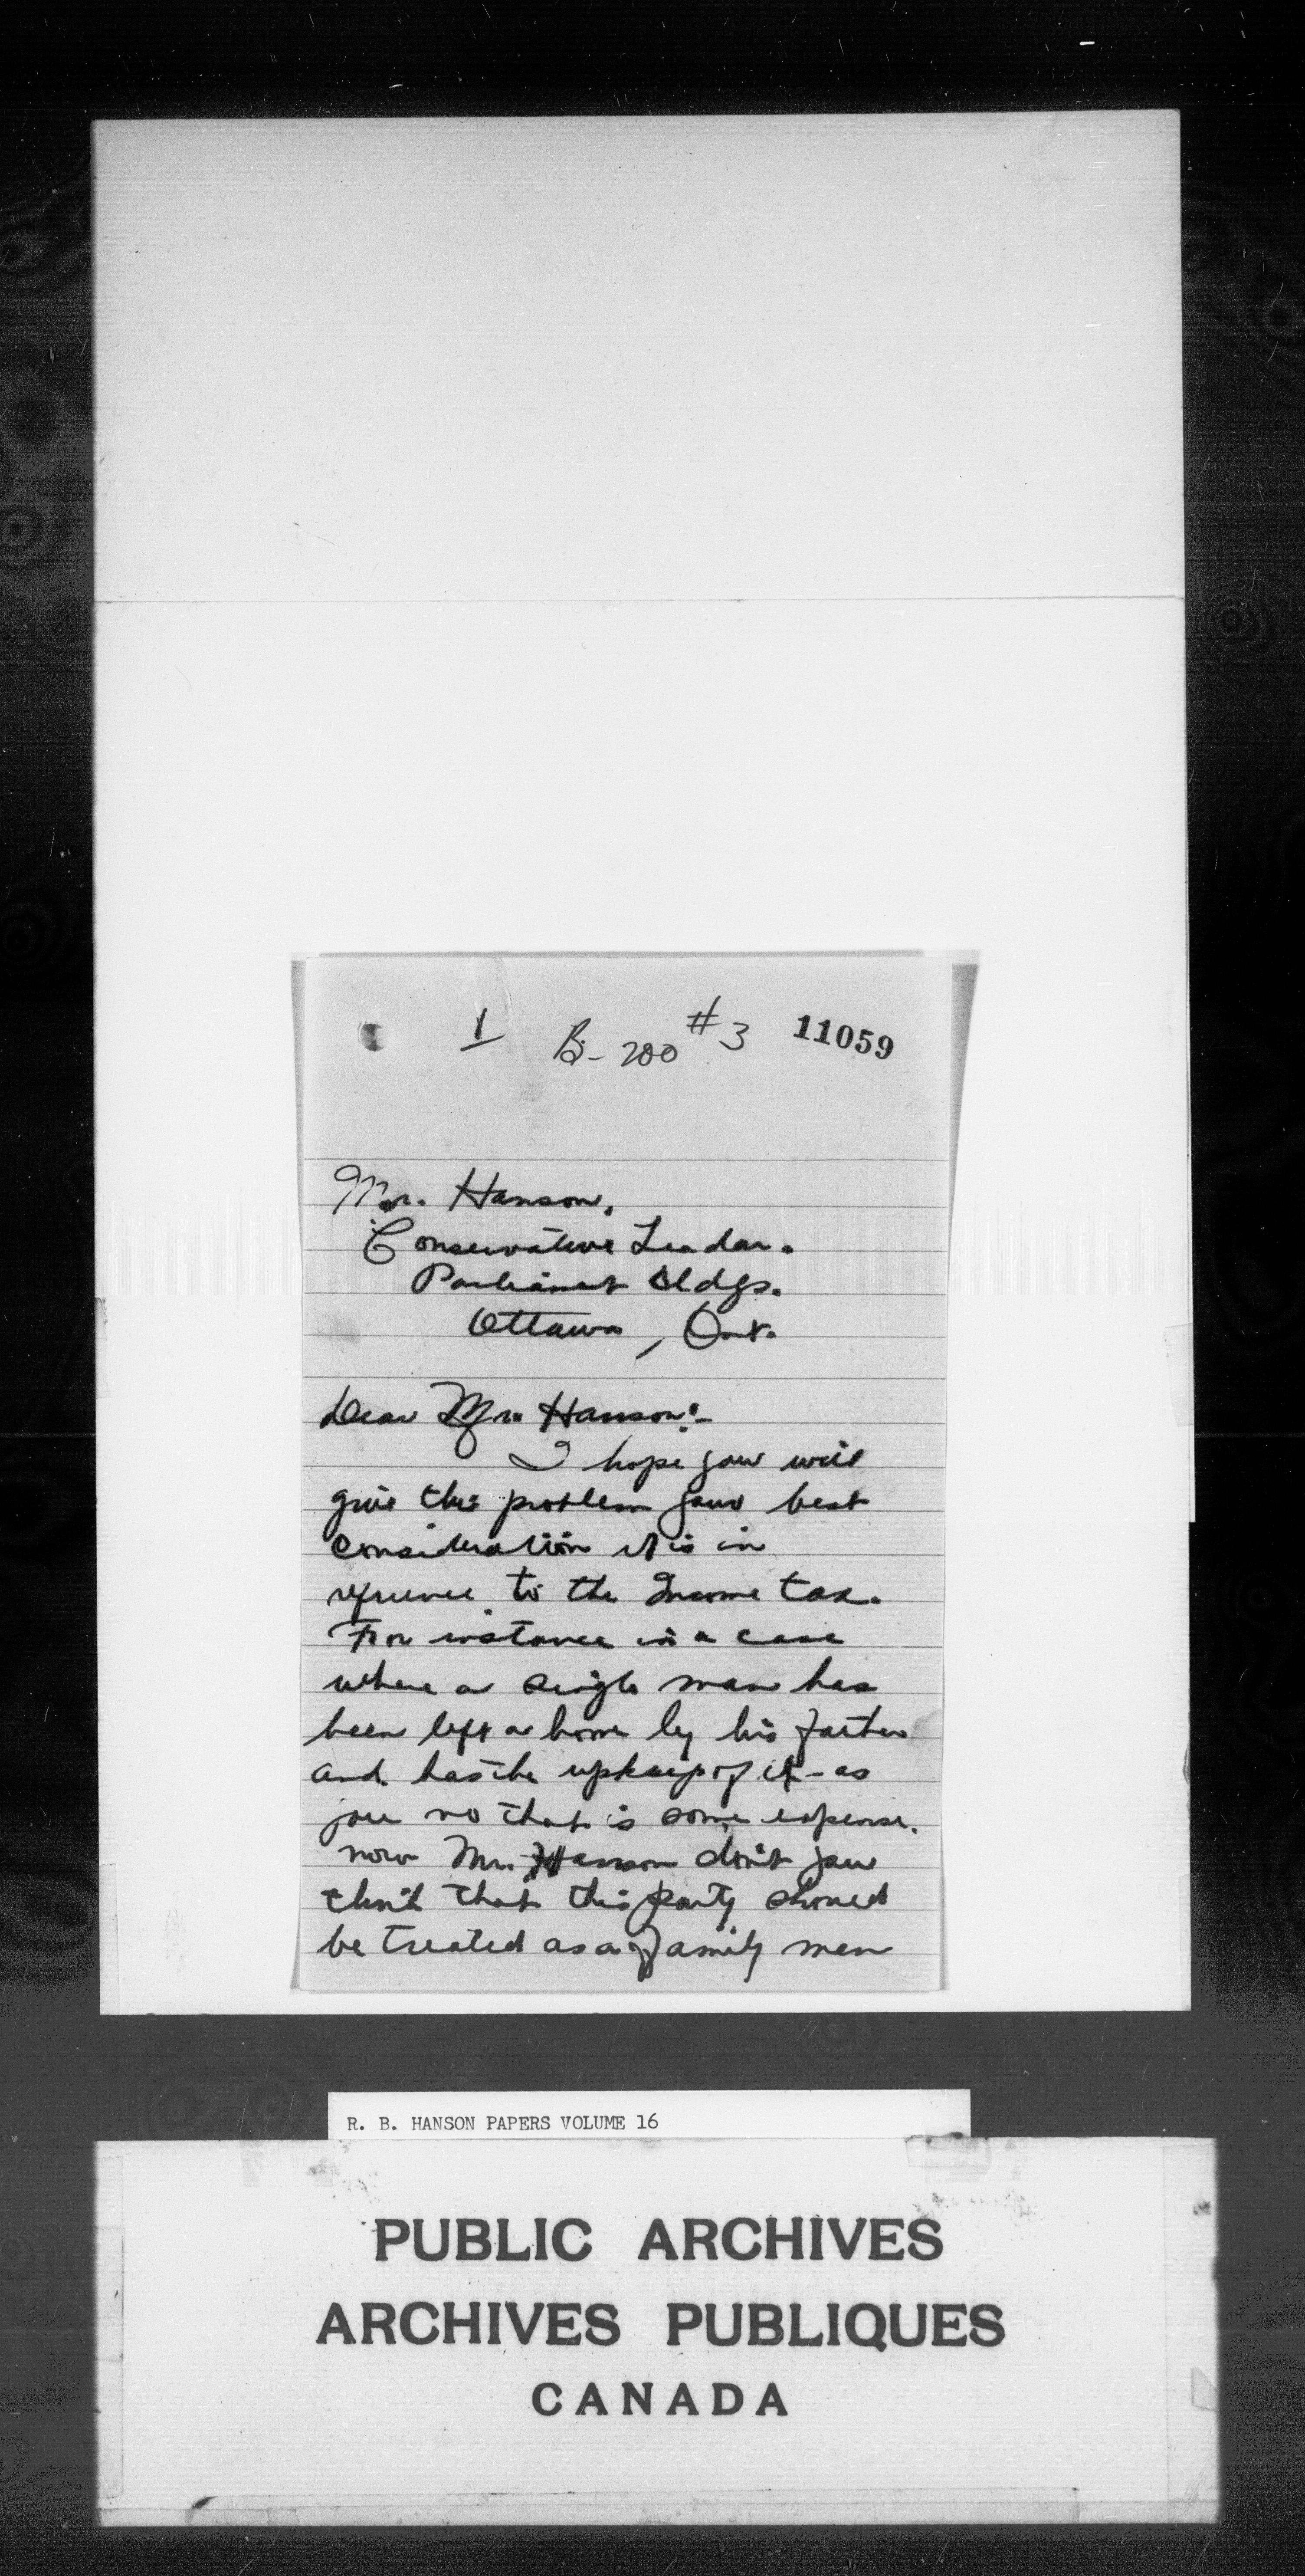 1 B-200 #3 11059
Mr. Hanson,
Conservative Leader.
Parliamet Bldgs.
Ottawa, Ont.
Dear Mr. Hanson:-
I hope you will
give this problem your best
consideration it is in
refrence to the Income tax.
For instance in a case
where a single man has
been left a home by his father
and has the upkeep of it - as
you no that is some expense.
now Mr. Hanson don't you
think that this party should
be treated as a family man
R. B. HANSON PAPERS VOLUME 16
PUBLIC ARCHIVES
ARCHIVES PUBLIQUES
CANADA